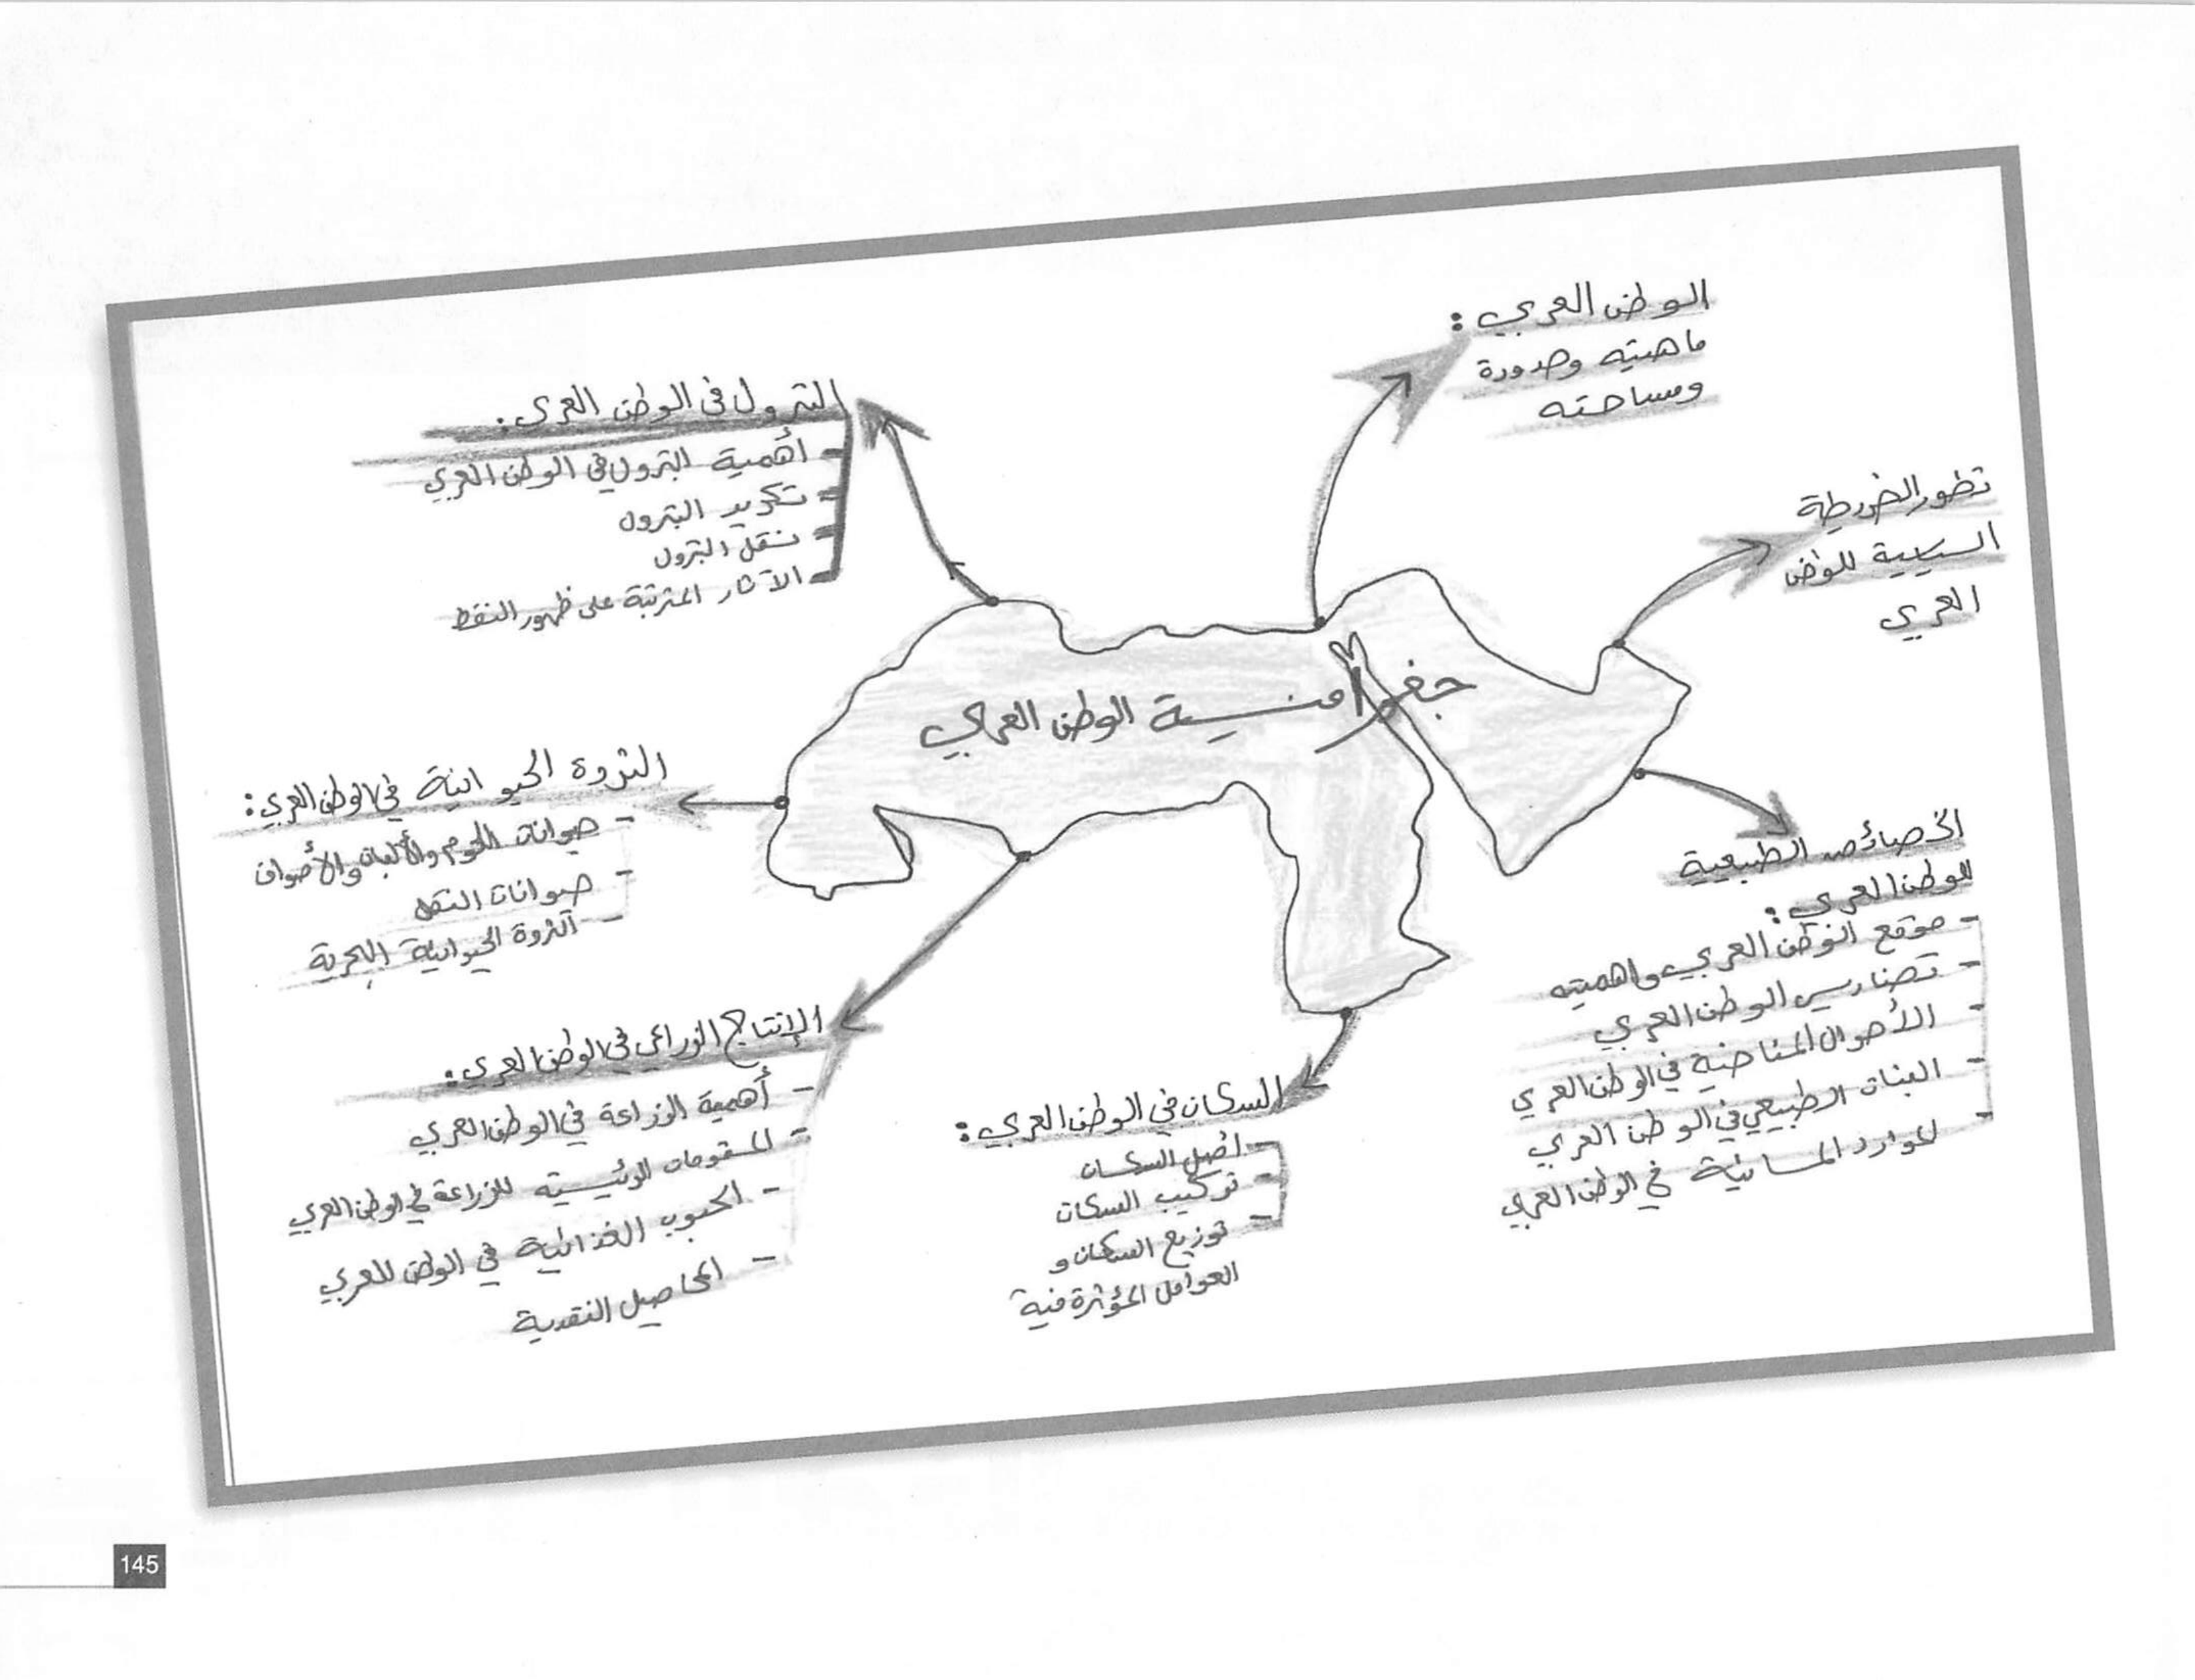 جغرافية الوطن العربي
الوطن العربي :
ماهيته وحدودة
ومساحته
تطور الخريطة
السياسية للوطن
العربي
الخصائص الطبيعية
للوطن العربي :
- موقع الوطن العربي واهميته
- تضاريس الوطن العربي
- الأحوال المناخية في الوطن العربي
- النبات الطبيعي في الوطن العربي
- الموارد المائية في الوطن العربي
السكان في الوطن العربي :
- أصل السكان
- تركيب السكان
- توزيع السكان و
العوامل المؤثرة فية
الإنتاج الزراعي في الوطن العربي :
- أهمية الزراعة في الوطن العربي
- المقومات الرئيسية للزراعة في الوطن العربي
- الحبوب الغذائية في الوطن العربي
- المحاصيل النقدية
الثروة الحيوانية في الوطن العربي :
- حيوانات اللحوم والألبان والأصواف
- حيوانات النقل
- الثروة الحيوانية البحرية
البترول في الوطن العربي :
- أهمية البترول في الوطن العربي
- تكرير البترول
- نقل البترول
- الآثار المترتبة على ظهور النفط
145